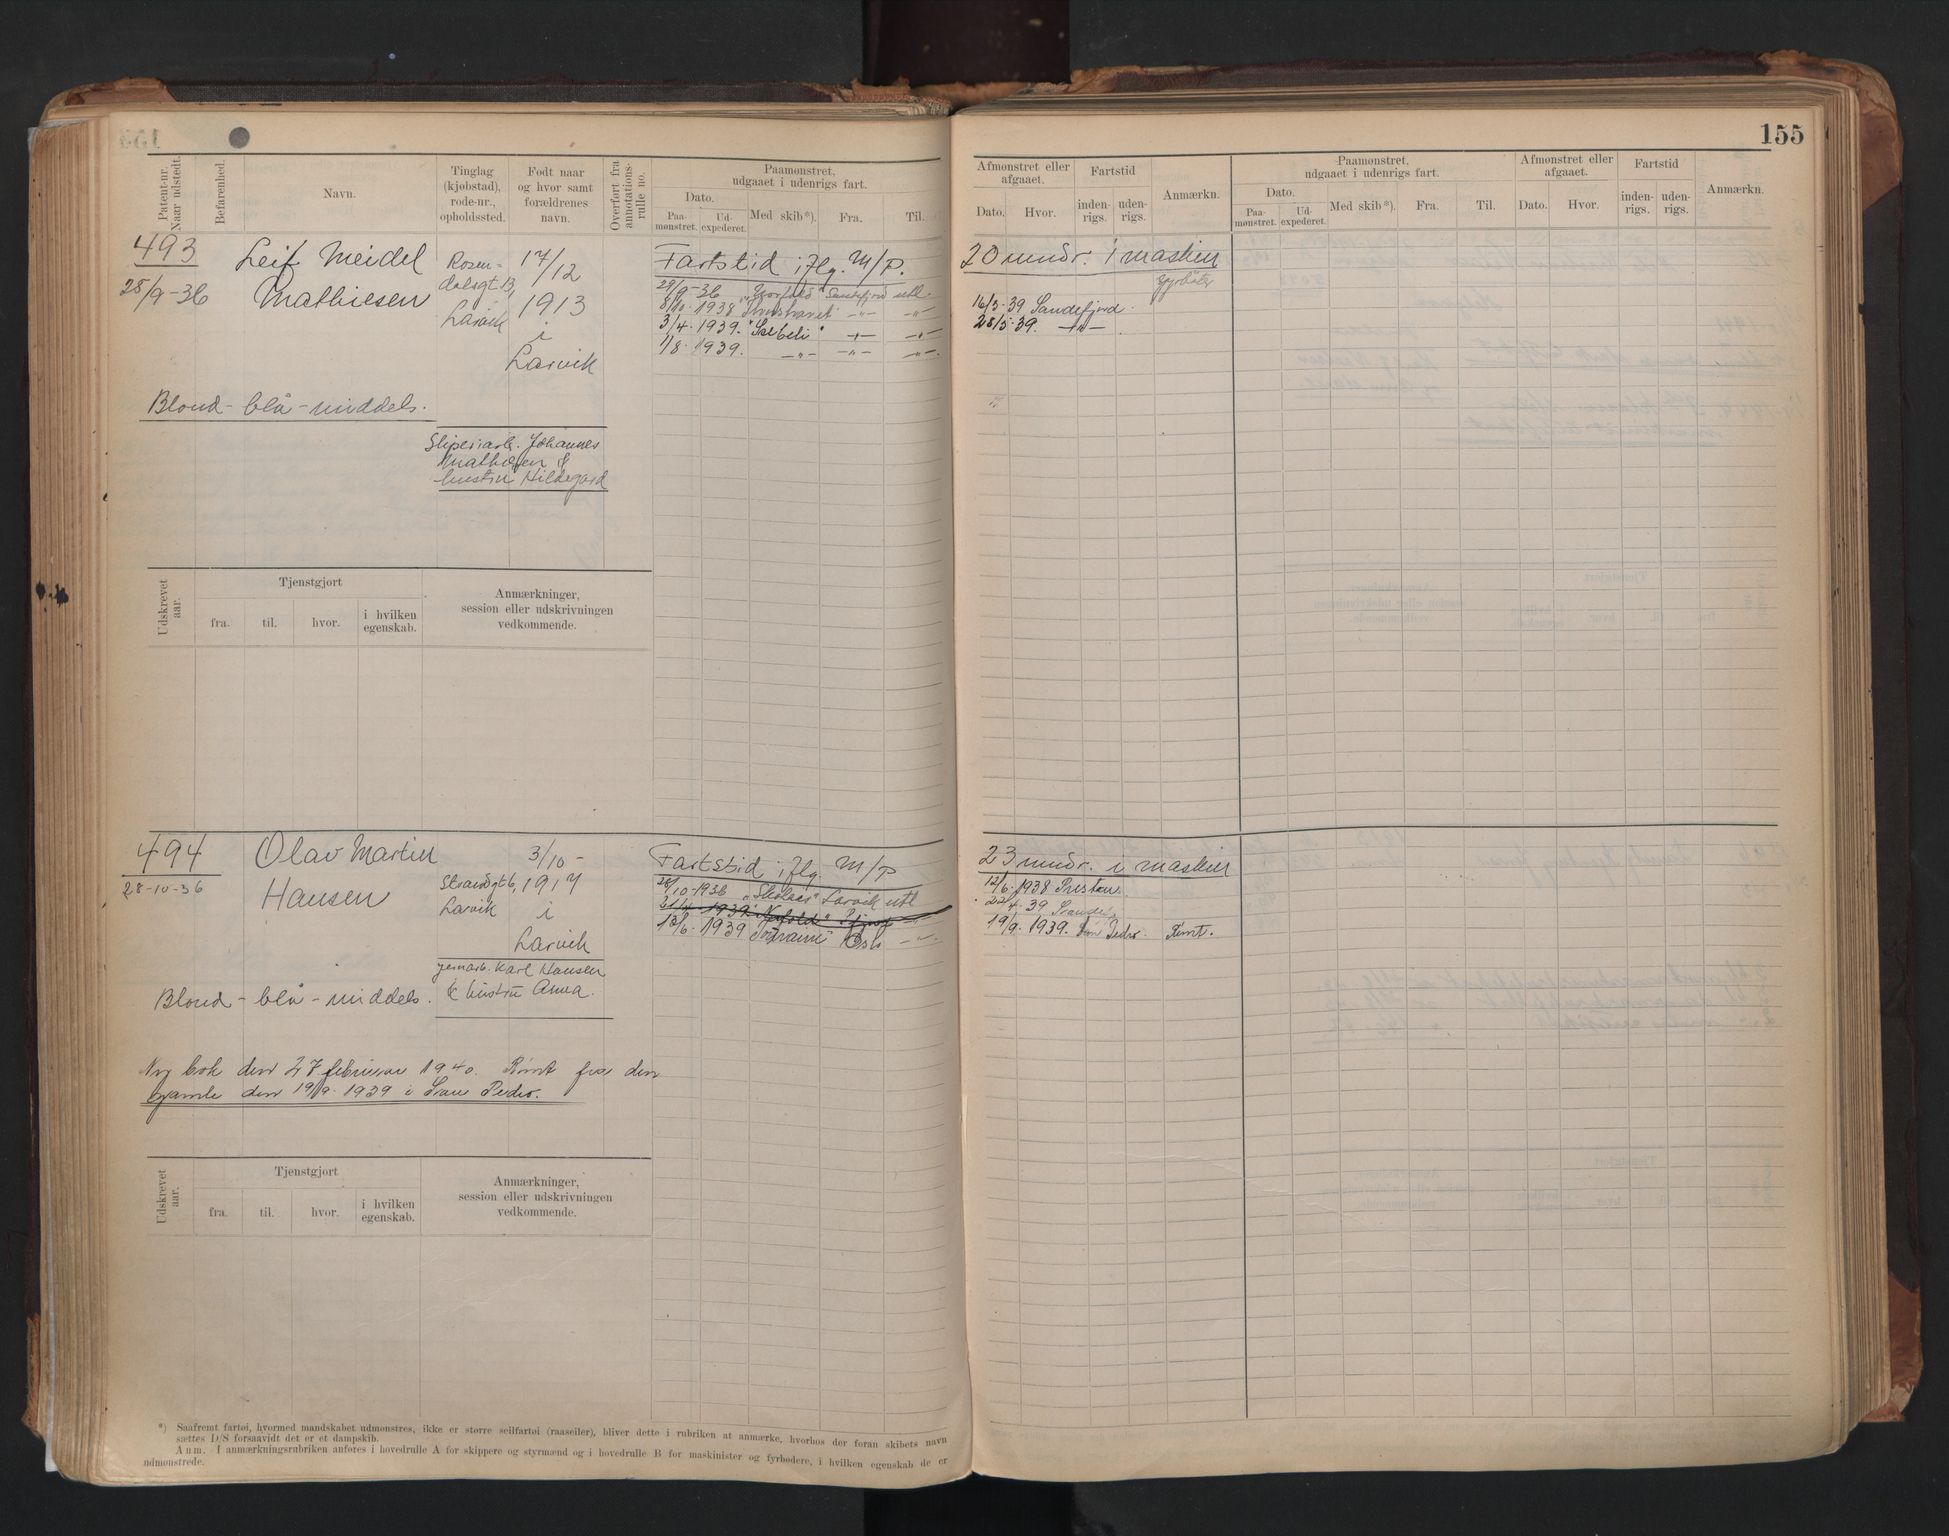 155
Patent-nr. Naar udstedt.
Befarenhed.
Navn.
Tinglag (kjøbstad), rode-nr., opholdssted.
Født naar og hvor samt forældrenes navn.
Overført fra annotations-rulle no.
Paamønstret, udgaaet i udenrigs fart.
Dato.
Paa-mønstret.
Ud-expederet.
Med skib*).
Fra.
Til.
Afmønstret eller afgaaet.
Dato.
Hvor.
Fartstid
inden-rigs.
uden-rigs.
Anmærkn.
Paamønstret, udgaaet i udenrigs fart.
Dato.
Paa-mønstret.
Ud-expederet.
Med skib*).
Fra.
Til.
Afmønstret eller afgaaet.
Dato.
Hvor.
Fartstid
inden-rigs.
uden-rigs.
Anmærkn.
493
28/9-36
Leif Meidel
Mathiesen
Rosen-
dalsgt 13,
Larvik
17/12
1913
i
Larvik
Blond - blå - middels.
Sliperiarb. Johannes
Mathiesen &
hustru Hildegard
Fartstid iflg. M/P.
29/9-36 Sandefjord utl.
8/10-1938 "Thorshavet" -"- -"-
3/4-1939. -"- -"-
1/8-1939. -"- -"- -"-
20 mndr. i maskin
16/5-39 Sandefjord
28/5-39. -"-
Udskrevet aar.
Tjenstgjort
fra.
til.
hvor.
i hvilken egenskab.
Anmærkninger, session eller udskrivningen vedkommende.
494
28-10-36
Olav Martin
Hansen
Strandgt 6,
Larvik
3/10-
1917
i
Larvik
jernarb. Karl Hansen
& hustru Anna.
Blond - blå - middels.
Fartstid iflg. M/P
28/10-1936 Larvik utl
21/4-1939
13/6-1939 Oslo -"-
23 mndr. i maskin
12/6-1938 Preston
22/4 39
19/9-1939. San Pedro. Rømt.
Ny bok den 27 februar 1940. Rømt fra den
gamle den 19/9-1939 i San Pedro.
Udskrevet aar.
Tjenstgjort
fra.
til.
hvor.
i hvilken egenskab.
Anmærkninger, session eller udskrivningen vedkommende.
*) Saafremt fartøi, hvormed mandskabet udmønstres, ikke er større seilfartøi (raaseiler), bliver dette i rubriken at anmærke, hvorhos der foran skibets navn
sættes D/S forsaavidt det er et dampskib.
Anm. I anmærkningsrubriken anføres i hovedrulle A for skippere og styrmænd og i hovedrulle B for maskinister og fyrbødere, i hvilken egenskab de er
udmønstrede.